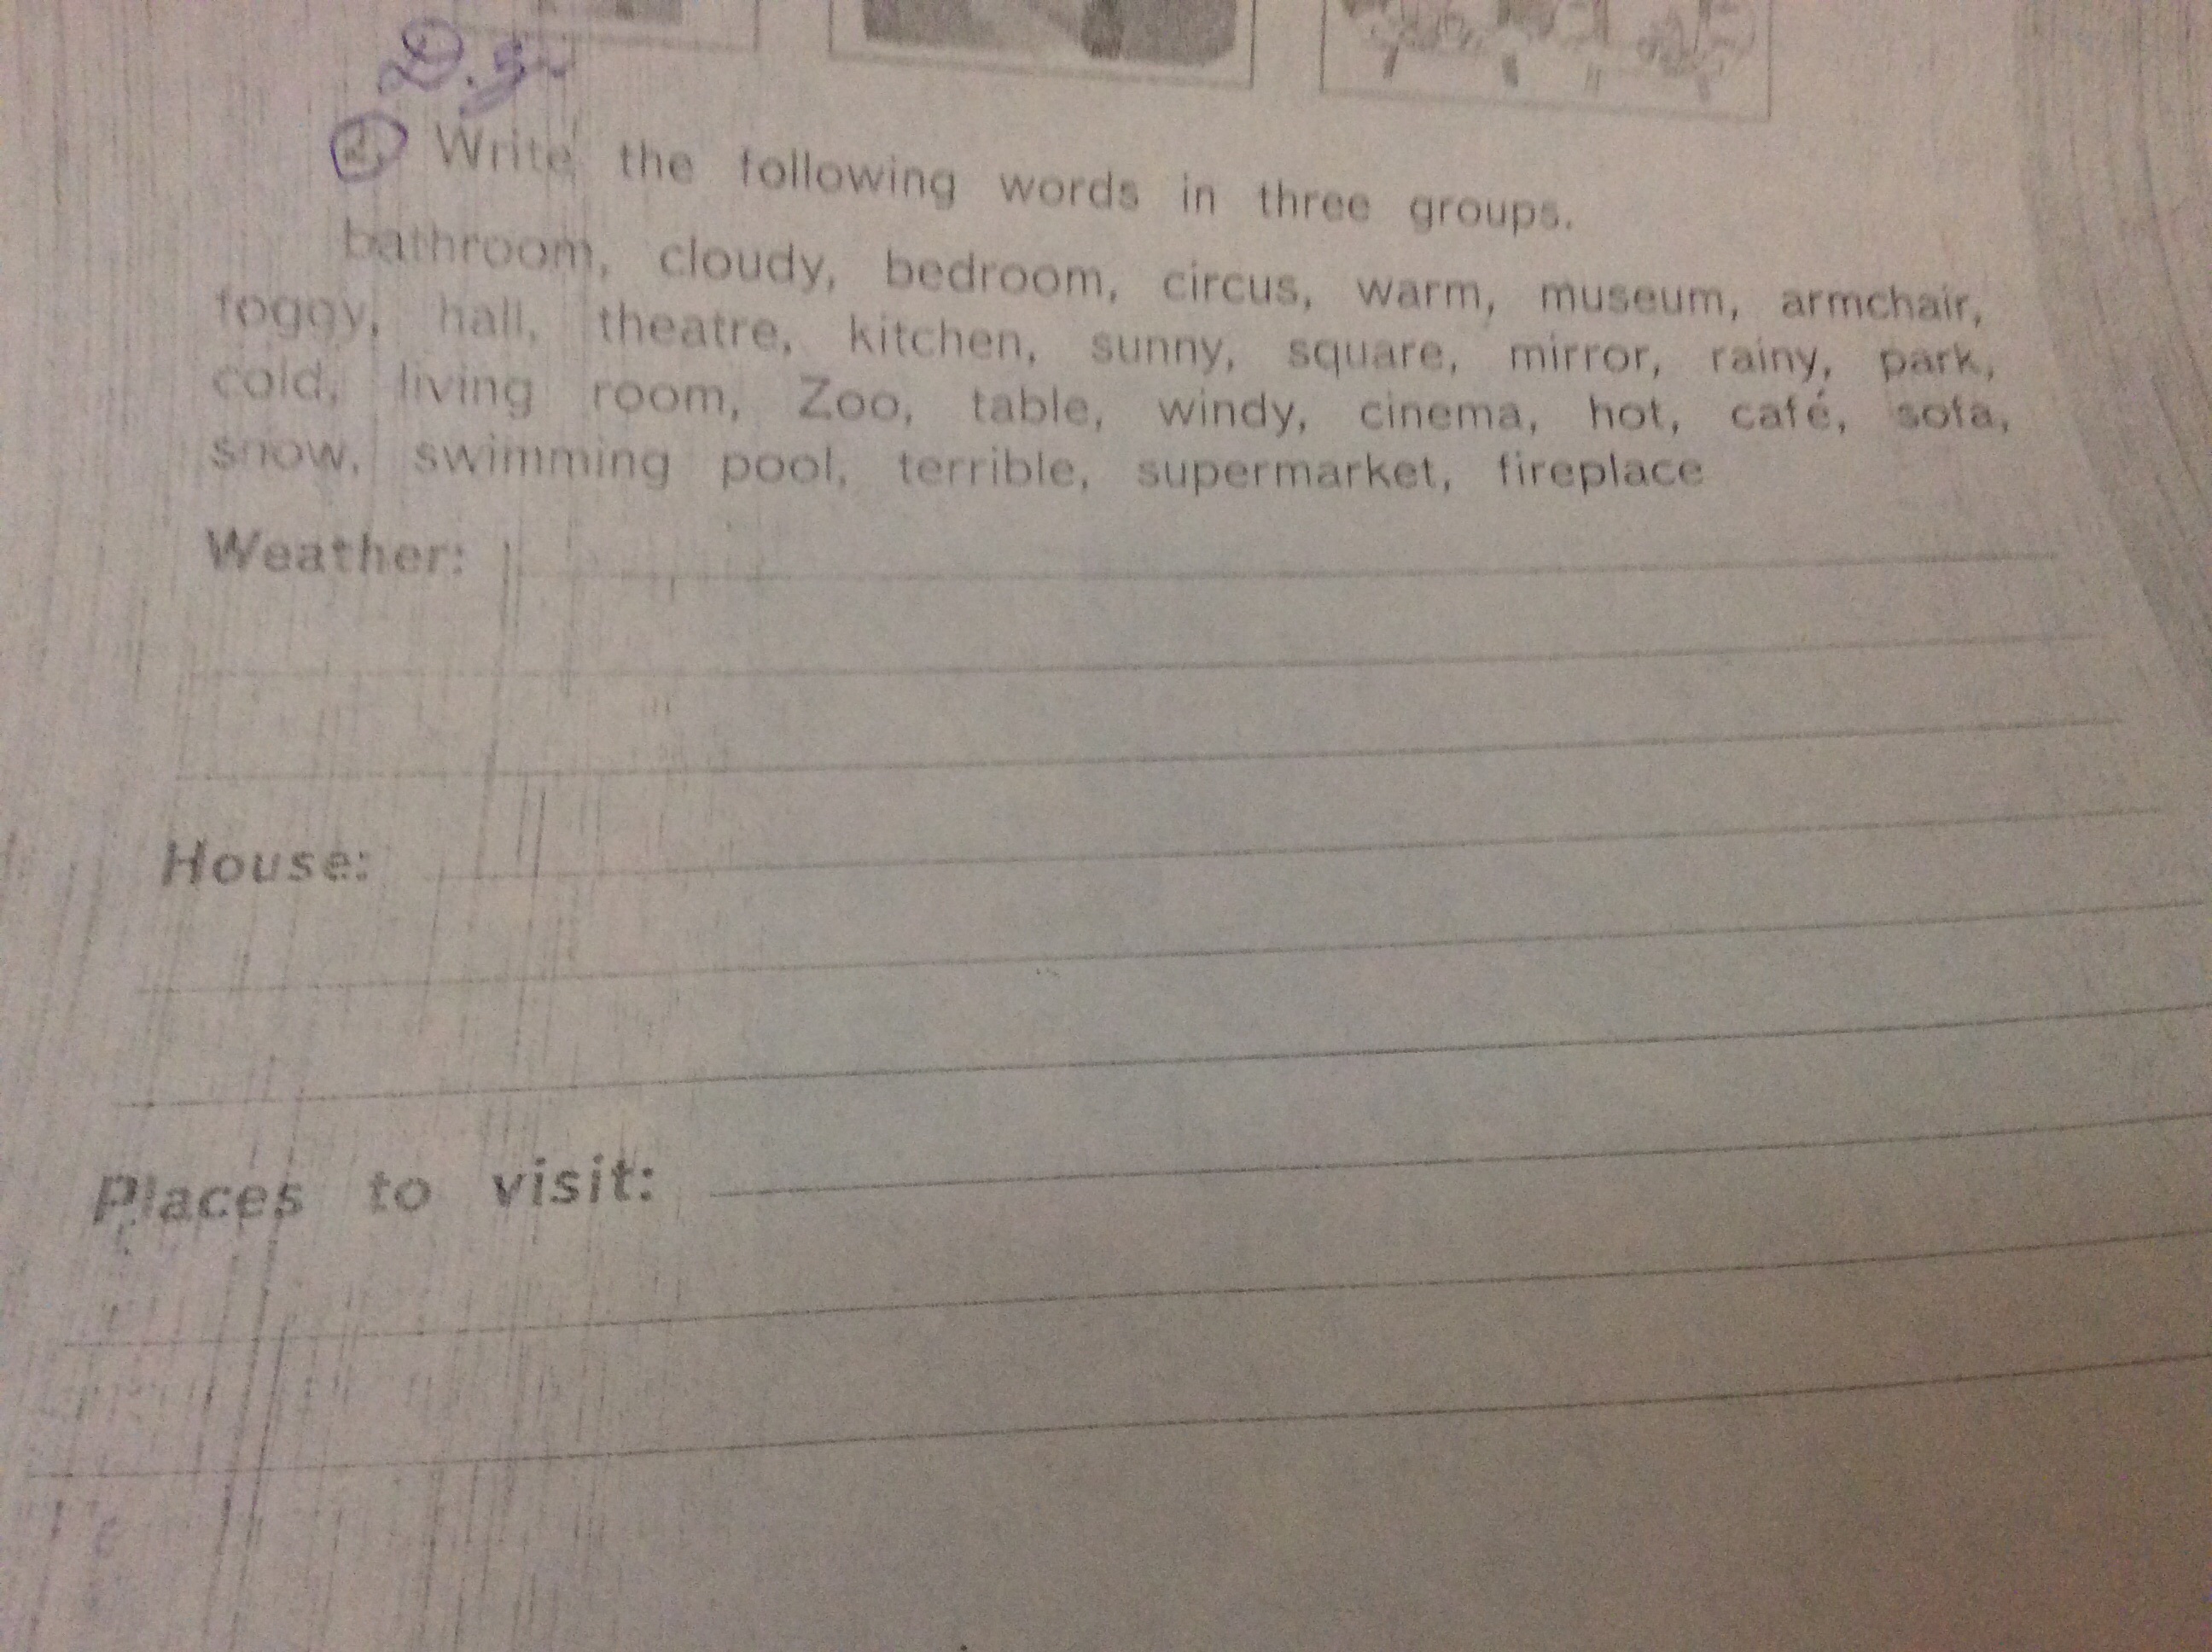 Write the following words in three groups.
bathroom, cloudy, bedroom, circus, warm, museum, armchair,
foggy, hall, theatre, kitchen, sunny, square, mirror, rainy, park,
cold, living room, Zoo, table, windy, cinema, hot, café, sofa,
snow, swimming pool, terrible, supermarket, fireplace
Weather:
House:
Places to visit: